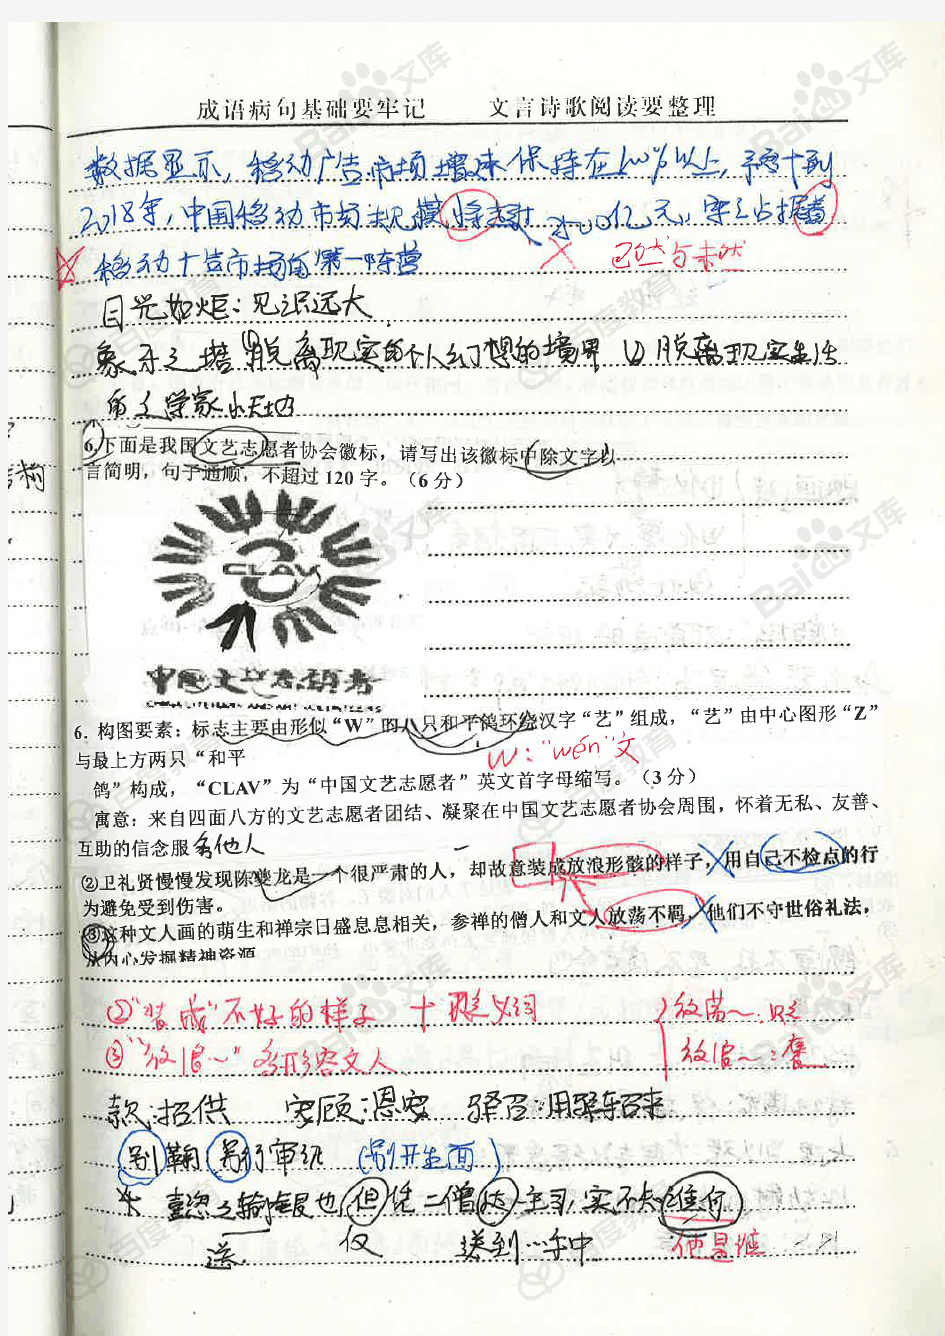 成语病句基础要牢记 文言诗歌阅读要整理
数据显示，移动广告市场增速保持在100%以上，预计到
2018年，中国移动市场规模将超过 亿元，牢牢占据着
移动广告市场的第一阵营
已然与未然
目光如炬：见识远大
象牙之塔 ①脱离现实的个人幻想的境界 ②脱离现实生活
的文学家小天地
6.下面是我国文艺志愿者协会徽标，请写出该徽标中除文字以
言简明，句子通顺，不超过120字。（6分）
CLAV
中国文艺志愿者
6. 构图要素：标志主要由形似“W”的八只和平鸽环绕汉字“艺”组成，“艺”由中心图形“Z”
与最上方两只“和平
W：“wén”文
鸽”构成，“CLAV”为“中国文艺志愿者”英文首字母缩写。（3分）
寓意：来自四面八方的文艺志愿者团结、凝聚在中国文艺志愿者协会周围，怀着无私、友善、
互助的信念服务他人
②卫礼贤慢慢发现陈夔龙是一个很严肃的人，却故意装成放浪形骸的样子，用自己不检点的行
为避免受到伤害。
③这种文人画的萌生和禅宗日盛息息相关，参禅的僧人和文人放荡不羁，他们不守世俗礼法，
从内心发掘精神资源
②“装成”不好的样子 + 贬义词
③“放浪～”多形容文人
放荡～：贬
放浪～：褒
款：招供 宠顾：恩宠 驿召：用驿车召来
别 行审视 （别开生面）
之输 也，但凭二僧达主司，实不知谁何
送 仅 送到…手中 他是谁